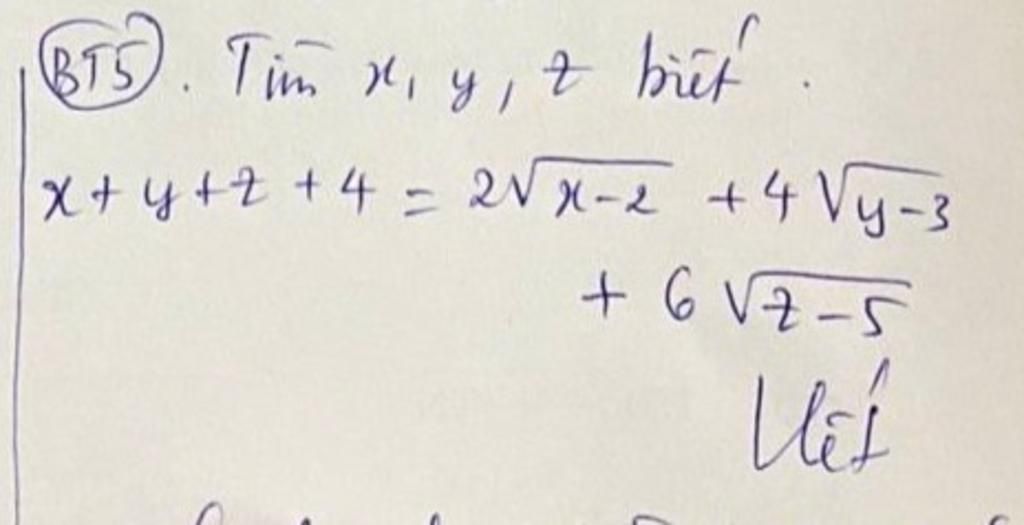 BT5. Tìm x, y, z biết.
x + y + z + 4 = 2√(x-2) + 4√(y-3)
+ 6√(z-5)
Hết